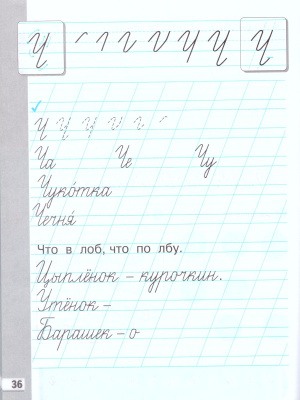 Ч Ч Ч Ч
Ч Ч Ч
Ча Че Чу
Чуко́тка
Чечня́
Что в лоб, что по лбу.
Цыплёнок – курочкин.
Утёнок –
Барашек – о
36